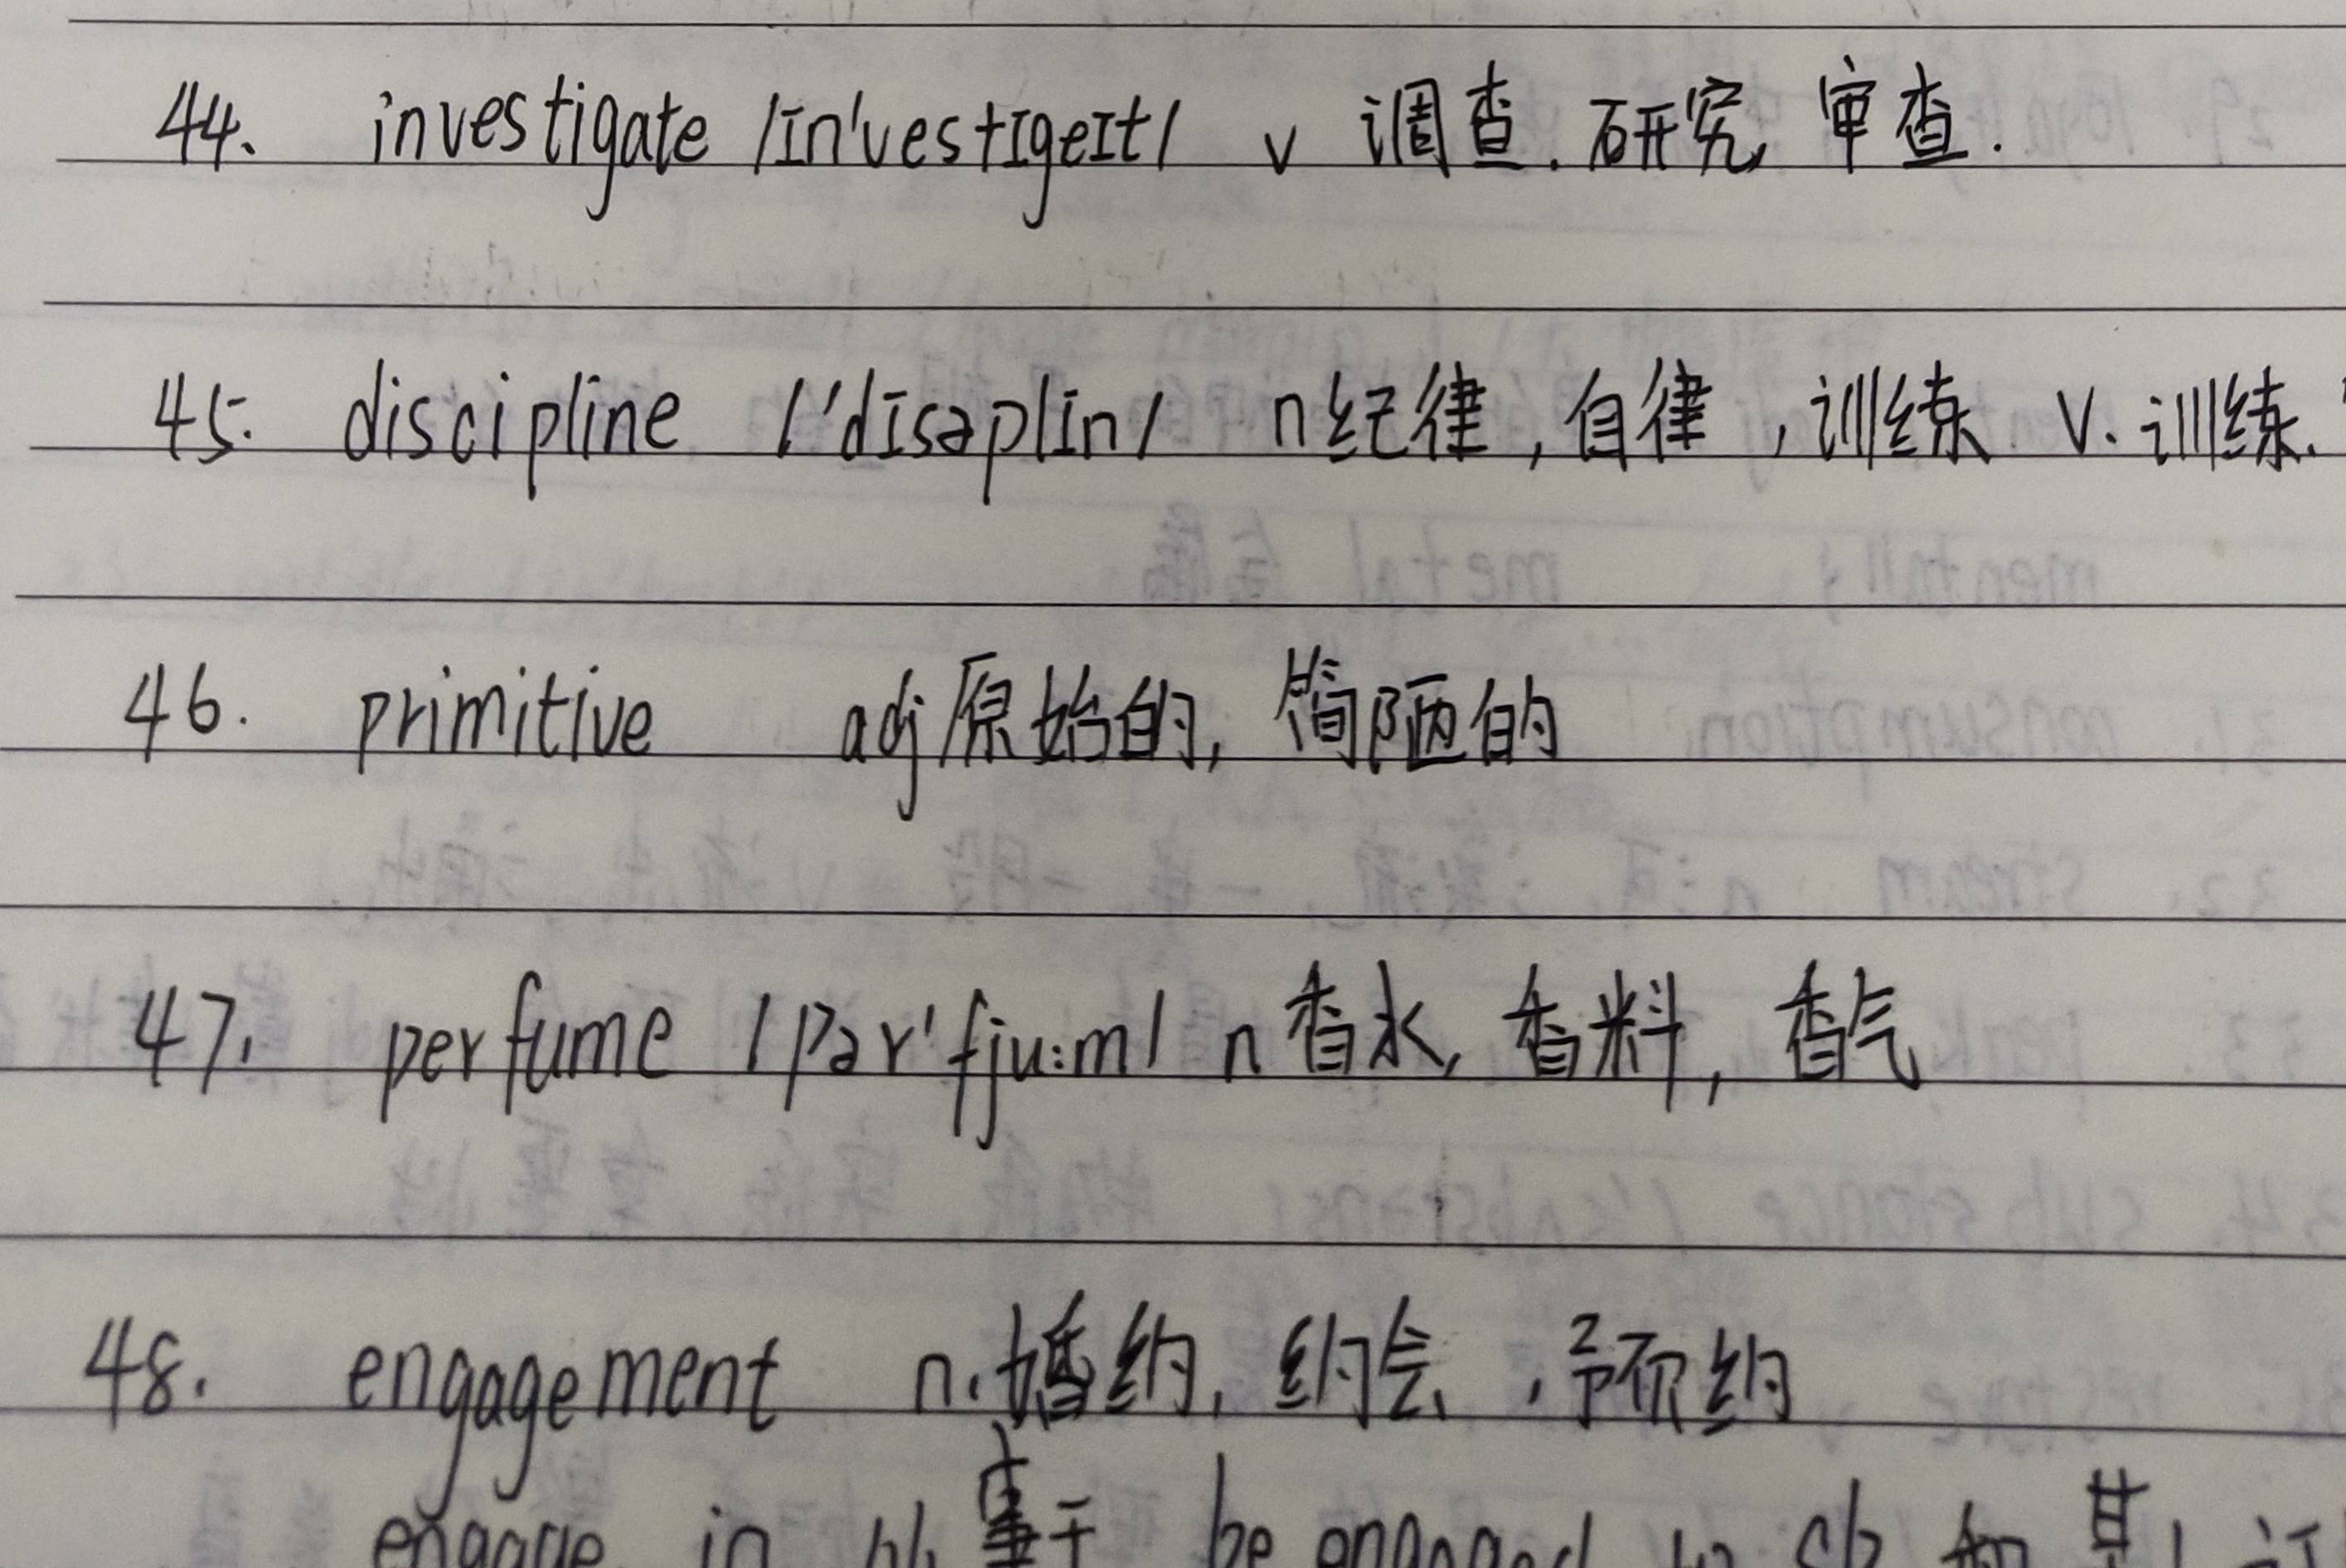 44、 investigate /ɪn'vestɪgeɪt/ v 调查.研究,审查.
45. discipline /'dɪsəplɪn/ n纪律,自律,训练 v.训练.
46. primitive adj原始的,简陋的
47. perfume /pər'fju:m/ n香水,香料,香气
48. engagement n.婚约,约会,预约
engage in be engaged to sb 和某